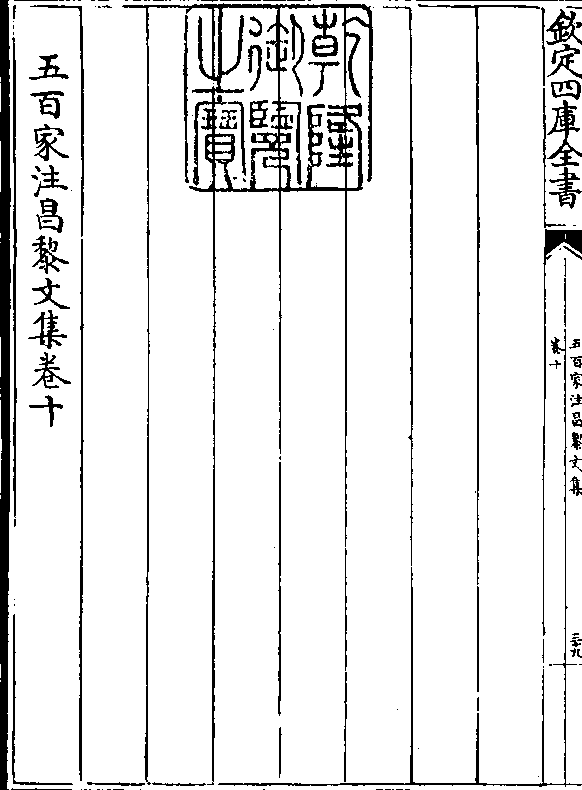 欽定四庫全書
五百家注昌黎文集
卷十
三十九
乾隆
御覽
之寶
五百家注昌黎文集卷十